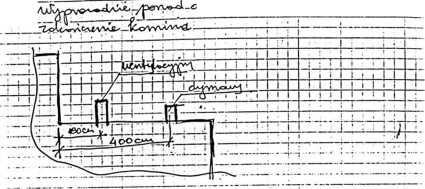 wyprowadzić ponad
zakończenie komina
wentylacyjny
dymowy
150cm
400cm